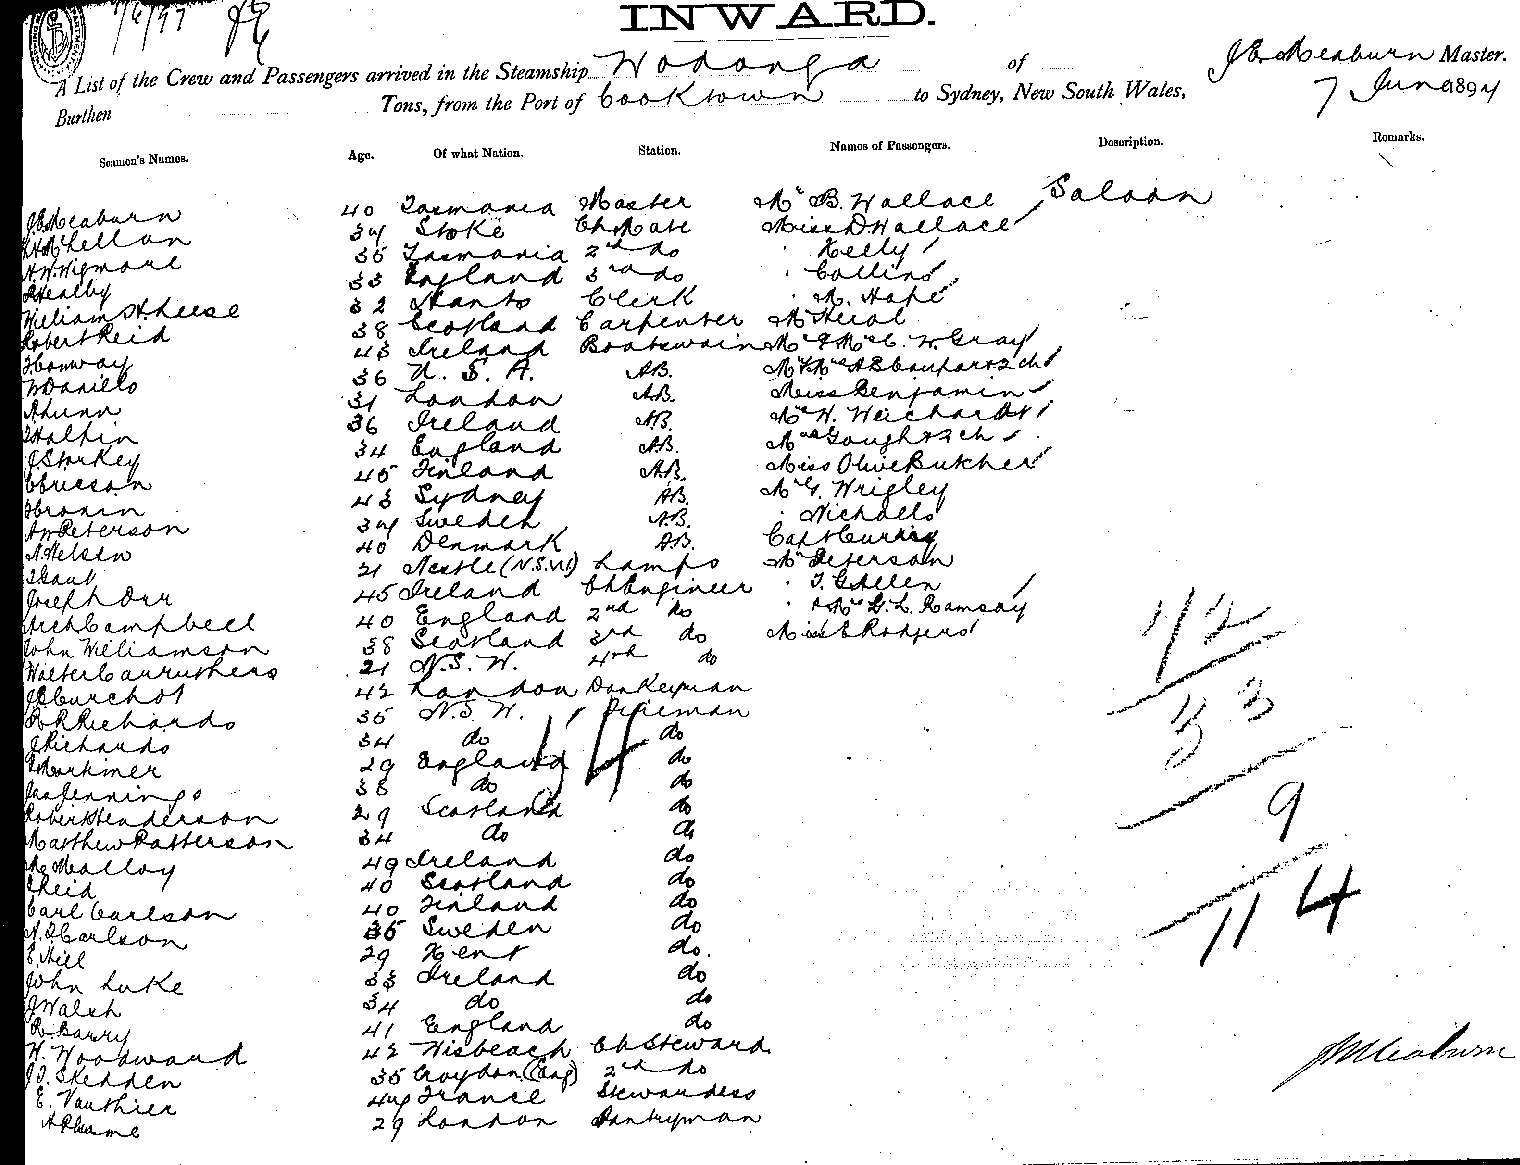 7/6/97
INWARD.
A List of the Crew and Passengers arrived in the Steamship Wodonga of J E Meaburn Master.
Burthen Tons, from the Port of Cooktown to Sydney, New South Wales, 7 June 1897
Seamen's Names. Age. Of what Nation. Station. Names of Passengers. Description. Remarks.
J E Meaburn 40 Tasmania Master Mr B. Wallace Saloon
McLellan 34 Stoke Ch Mate Miss D Wallace
A. W. Wigmore 35 Tasmania 2nd do " Kelly
Healby 33 England 3rd do " Collins
William H. Leese 32 Hants Clerk " M. Hope
Robert Reid 38 Scotland Carpenter Mr
J Conway 43 Ireland Boatswain Mr & Mrs C. W. Gray
W Danillo 36 U. S. A. AB. Mr & Mrs & 2 ch
A Lunn 31 London AB. Miss Benjamin
Halpin 36 Ireland AB. Mr W. Weichardt
J Storkey 34 England AB. Mrs Gough & 2 ch
C Ericson 45 Finland AB. Miss Olive Butcher
Cronin 43 Sydney AB. Mr G. Wrigley
A W Peterson 34 Sweden AB. " Nicholls
N Nelsen 40 Denmark AB. Capt Currie
J Gault 21 Nestle (N.S.W) Lamps Mr Peterson
Joseph Orr 45 Ireland Ch Engineer " T. G Allen
Arch Campbell 40 England 2nd do " & Mrs G. L. Ramsay
John Williamson 38 Scotland 3rd do Miss E Rodgers
Walter Carruthers 21 N. S. W. 4th do
J Burchot 42 London Donkeyman
R Richards 35 N. S. W. Fireman
J Richards 34 do do
Mortimer 29 England do
Jas Jennings 38 do do
Robert Henderson 29 Scotland do
Matthew Patterson 34 do do
Malloy 49 Ireland do
Reid 40 Scotland do
Carl Carlson 40 Finland do
A. J Carlson 35 Sweden do
E Hill 29 Kent do.
John Luke 33 Ireland do
J Walsh 34 do do
R. Barry 41 England do
W. Woodward 42 Wisbeach Ch Steward
J J. Skedden 35 Croydon (Eng) 2nd do
E. Vauthier 44 France Stewardess
29 London Pantryman
42
53
9
114
J E Meaburn